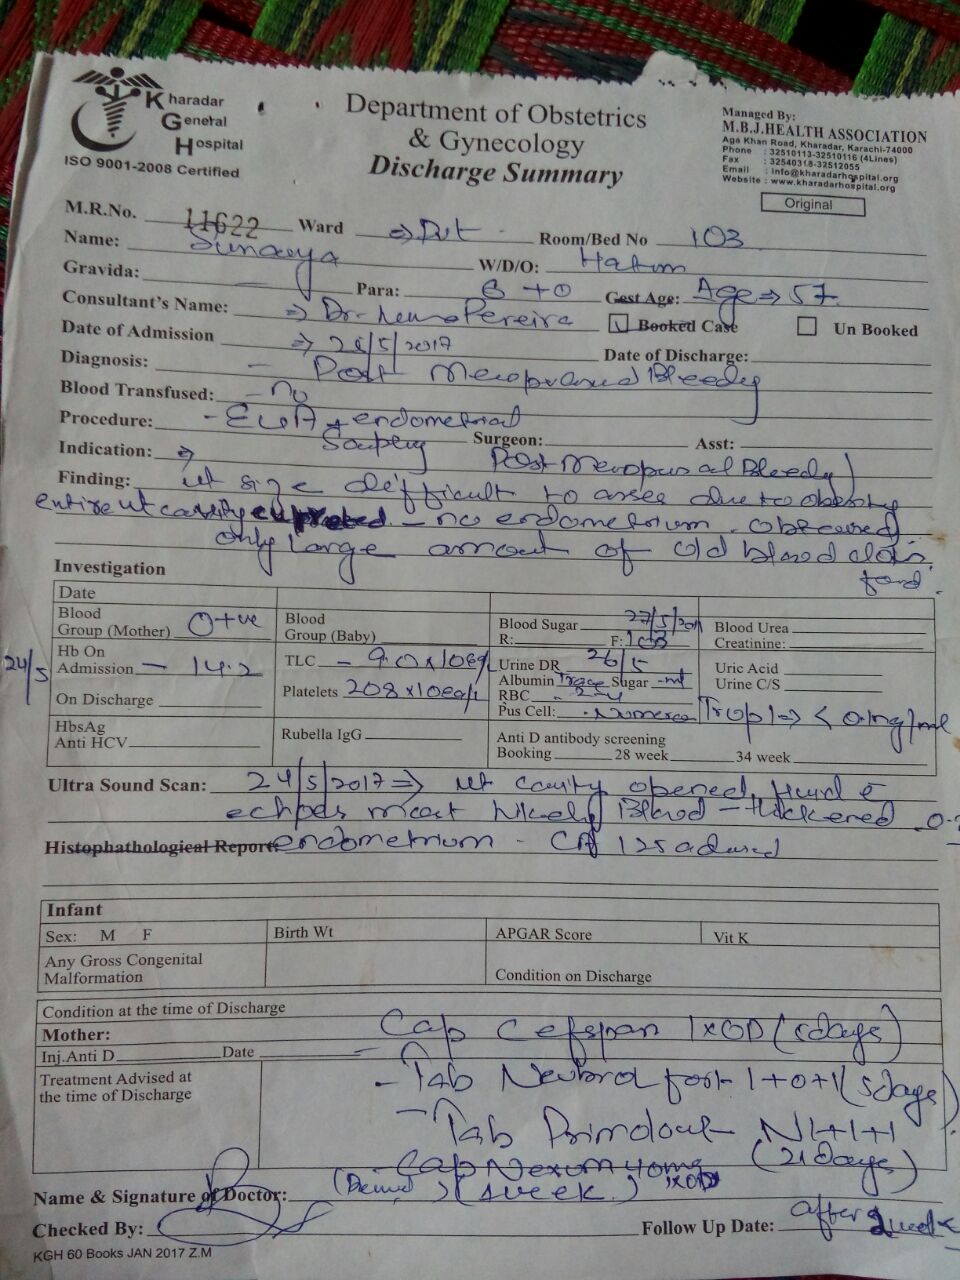 Kharadar
General
Hospital
ISO 9001-2008 Certified
Department of Obstetrics
& Gynecology
Discharge Summary
Managed By:
M.B.J.HEALTH ASSOCIATION
Aga Khan Road, Kharadar, Karachi-74000
Phone : 32510113-32510116 (4Lines)
Fax : 32540318-32512055
Email : info@kharadarhospital.org
Website : www.kharadarhospital.org
Original
M.R.No. 11622 Ward ⇒ Room/Bed No 103
Name: W/D/O:
Gravida: — Para: 6+0 Gest Age: Age ⇒ 57
Consultant's Name: ⇒ Dr. Pereira Booked Case Un Booked
Date of Admission ⇒ 26/5/2017 Date of Discharge:
Diagnosis: — Post
Blood Transfused: - no
Procedure: - EUA + endometrial
Surgeon: Asst:
Indication: ⇒ Post
Finding: ut size difficult to due to obesity
entire ut cavity - no endometrium
only large amount of old blood clots
Investigation
Date
Blood Group (Mother) O+ve Blood Group (Baby) Blood Sugar 27/5/201 R: F: 103 Blood Urea Creatinine:
24/5 Hb On Admission — 14.2 TLC - 9.0x10 Urine DR 26/5 Uric Acid
Albumin Trace Sugar -nil Urine C/S
On Discharge Platelets 208x10 RBC - 2-4
Pus Cell: Trop I ⇒ <
HbsAg
Anti HCV Rubella IgG Anti D antibody screening
Booking 28 week 34 week
Ultra Sound Scan: 24/5/2017 ⇒ ut cavity opened, fluid c
echoes most likely Blood - thickened
Histophathological Report: endometrium - CA 125 advised
Infant
Sex: M F Birth Wt APGAR Score Vit K
Any Gross Congenital
Malformation Condition on Discharge
Condition at the time of Discharge
Mother: Cap Cefspan 1xOD (5days)
Inj.Anti D Date
Treatment Advised at
the time of Discharge
- Tab fort 1+0+1 (5days)
- Tab Primolout N 1+1+1
(21 days)
- Cap Nexum 40mg 1xOD
(1 week)
Name & Signature of Doctor:
Checked By: Follow Up Date: after 2 week
KGH 60 Books JAN 2017 Z.M